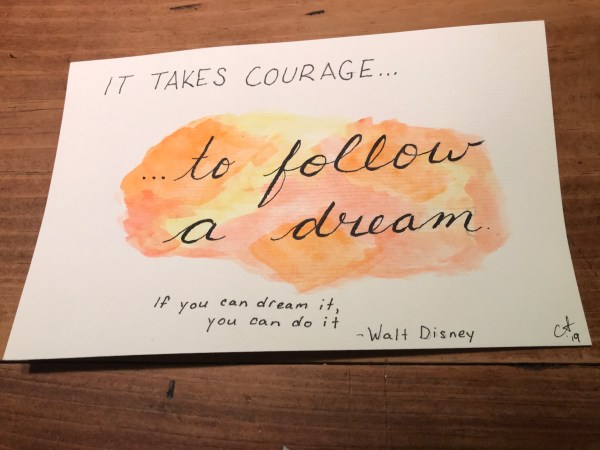 IT TAKES COURAGE...
...to follow
a dream.
If you can dream it,
you can do it
-Walt Disney
CA.
19